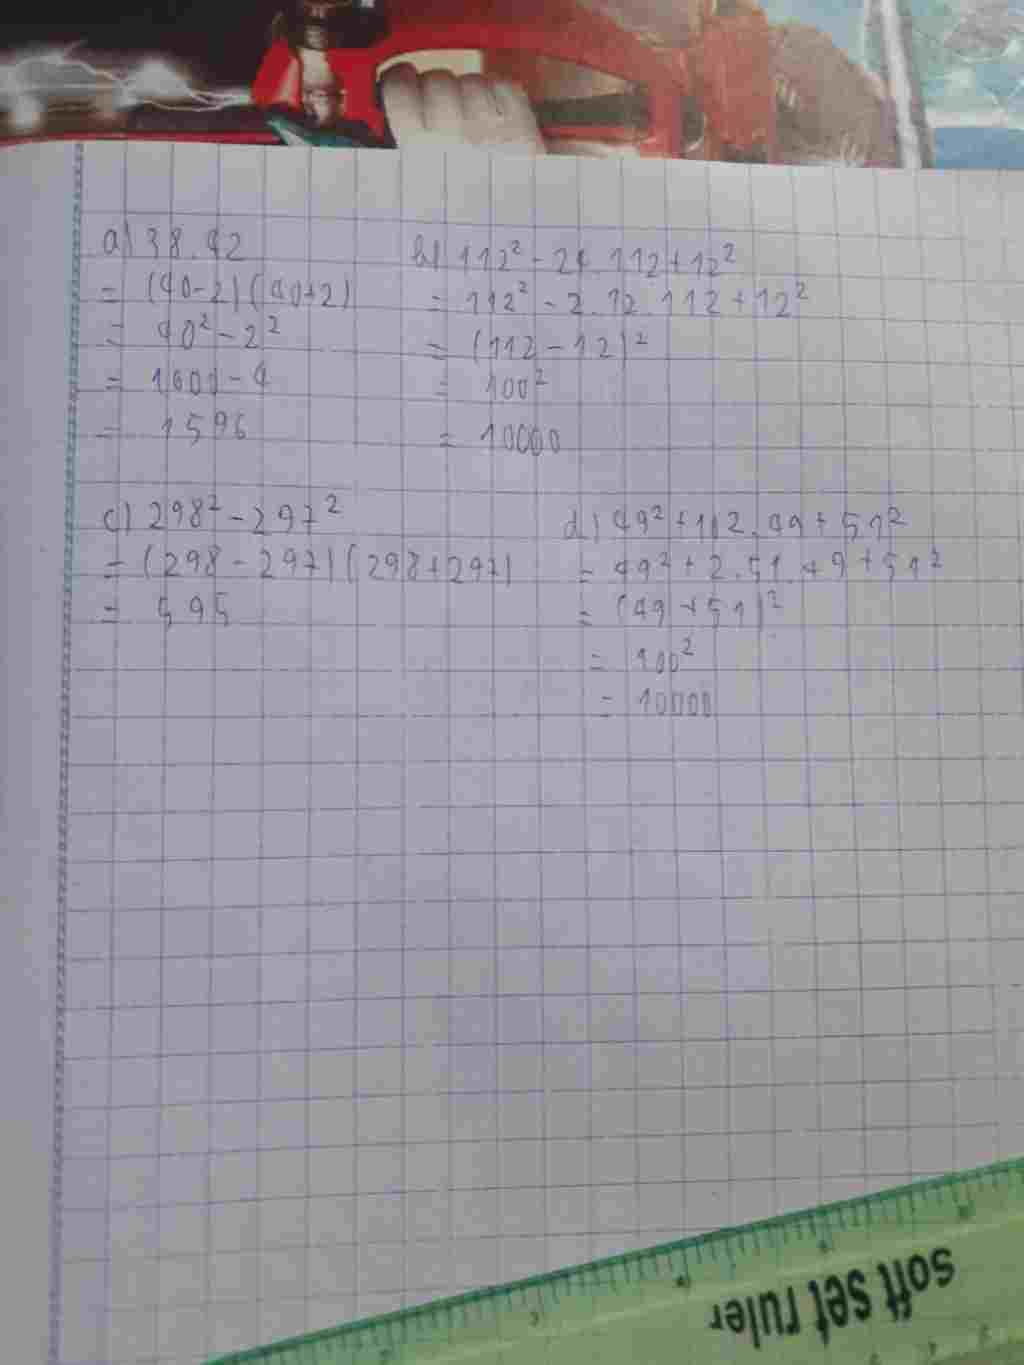 a) 38.42
= (40-2)(40+2)
= 40² - 2²
= 1600 - 4
= 1596
b) 112² - 24.112 + 12²
= 112² - 2.12.112 + 12²
= (112 - 12)²
= 100²
= 10000
c) 298² - 297²
= (298 - 297)(298 + 297)
= 595
d) 49² + 102.49 + 51²
= 49² + 2.51.49 + 51²
= (49 + 51)²
= 100²
= 10000
soft set ruler